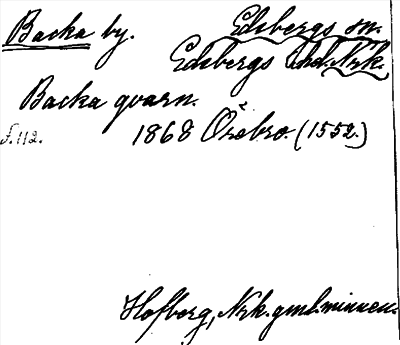 Backa by. Edsbergs sn.
Edsbergs hd. Nrk.
Backa qvarn.
s. 112. 1868 Örebro. (1552.)
Hofberg, Nrk. gml. minnen.